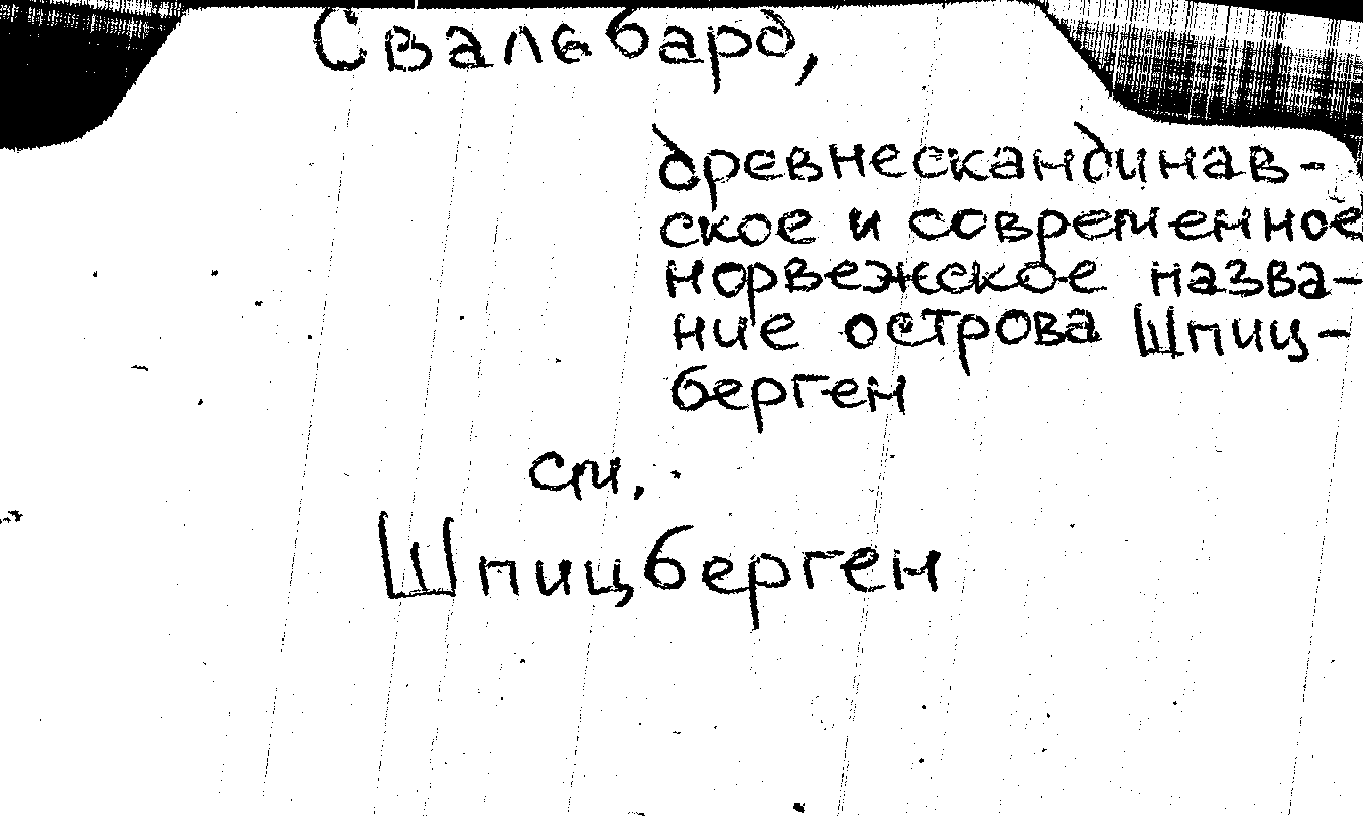 Свальбард,
древнескандинав-
ское и современное
норвежское назва-
ние острова Шпиц-
берген
см.
Шпицберген